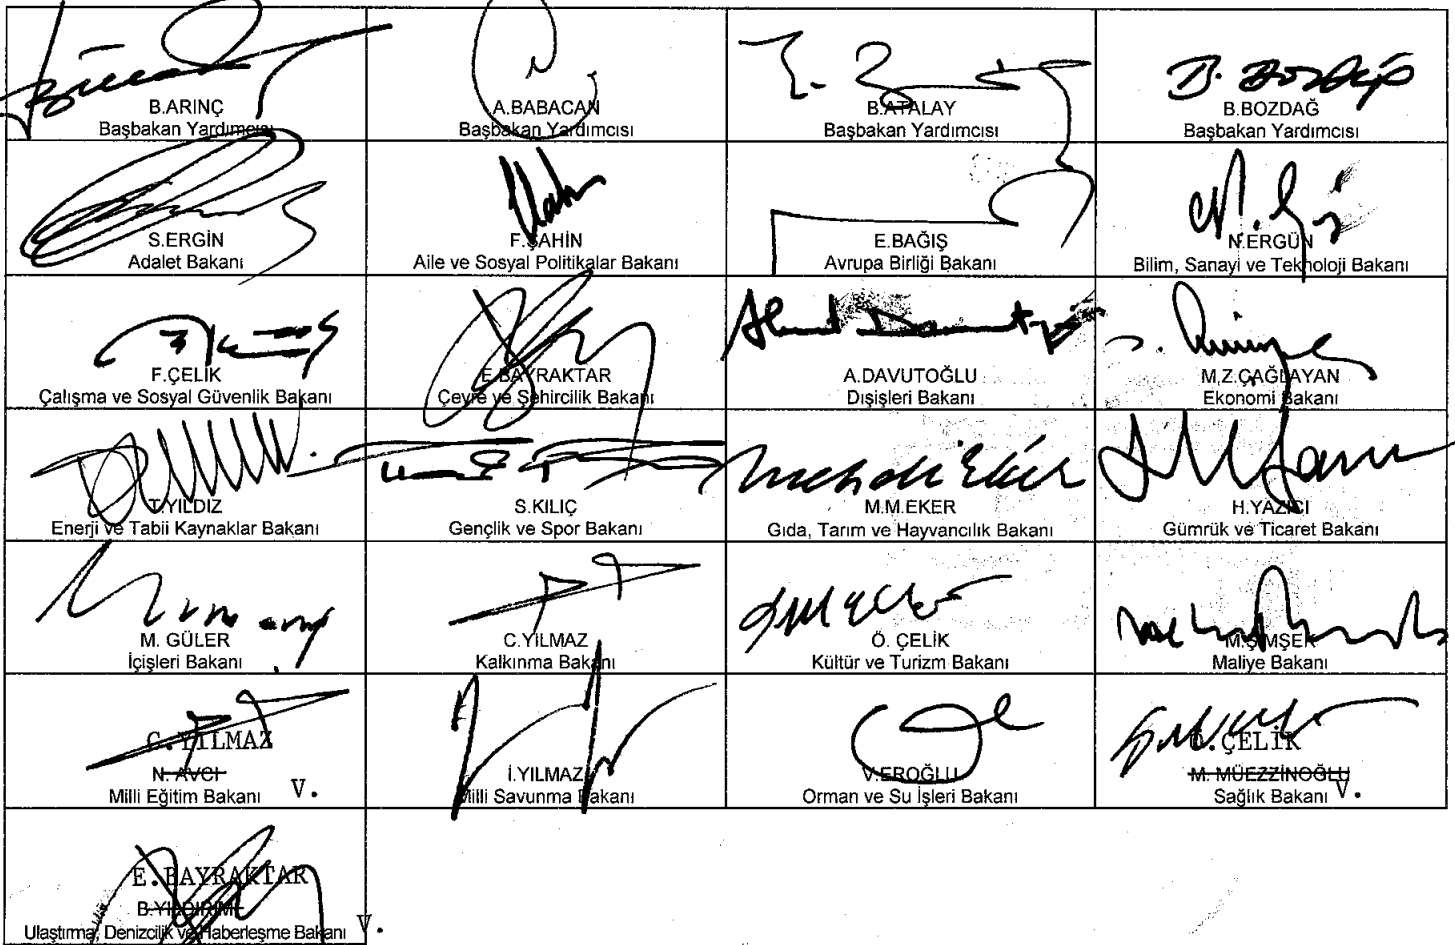 B.ARINÇ
Başbakan Yardımcısı
A.BABACAN
Başbakan Yardımcısı
B.ATALAY
Başbakan Yardımcısı
B. Bozdağ
B.BOZDAĞ
Başbakan Yardımcısı
S.ERGİN
Adalet Bakanı
F.ŞAHİN
Aile ve Sosyal Politikalar Bakanı
E.BAĞIŞ
Avrupa Birliği Bakanı
N.ERGÜN
Bilim, Sanayi ve Teknoloji Bakanı
F.ÇELİK
Çalışma ve Sosyal Güvenlik Bakanı
E.BAYRAKTAR
Çevre ve Şehircilik Bakanı
A.DAVUTOĞLU
Dışişleri Bakanı
M.Z.ÇAĞLAYAN
Ekonomi Bakanı
T.YILDIZ
Enerji ve Tabii Kaynaklar Bakanı
S.KILIÇ
Gençlik ve Spor Bakanı
Mehdi Eker
M.M.EKER
Gıda, Tarım ve Hayvancılık Bakanı
H.YAZICI
Gümrük ve Ticaret Bakanı
M. GÜLER
İçişleri Bakanı
C.YILMAZ
Kalkınma Bakanı
Ö. ÇELİK
Kültür ve Turizm Bakanı
M.ŞİMŞEK
Maliye Bakanı
C.YILMAZ
N. AVCI
Milli Eğitim Bakanı V.
İ.YILMAZ
Milli Savunma Bakanı
V.EROĞLU
Orman ve Su İşleri Bakanı
Ö.ÇELİK
M. MÜEZZİNOĞLU
Sağlık Bakanı V.
E.BAYRAKTAR
B.YILDIRIM
Ulaştırma, Denizcilik ve Haberleşme Bakanı V.